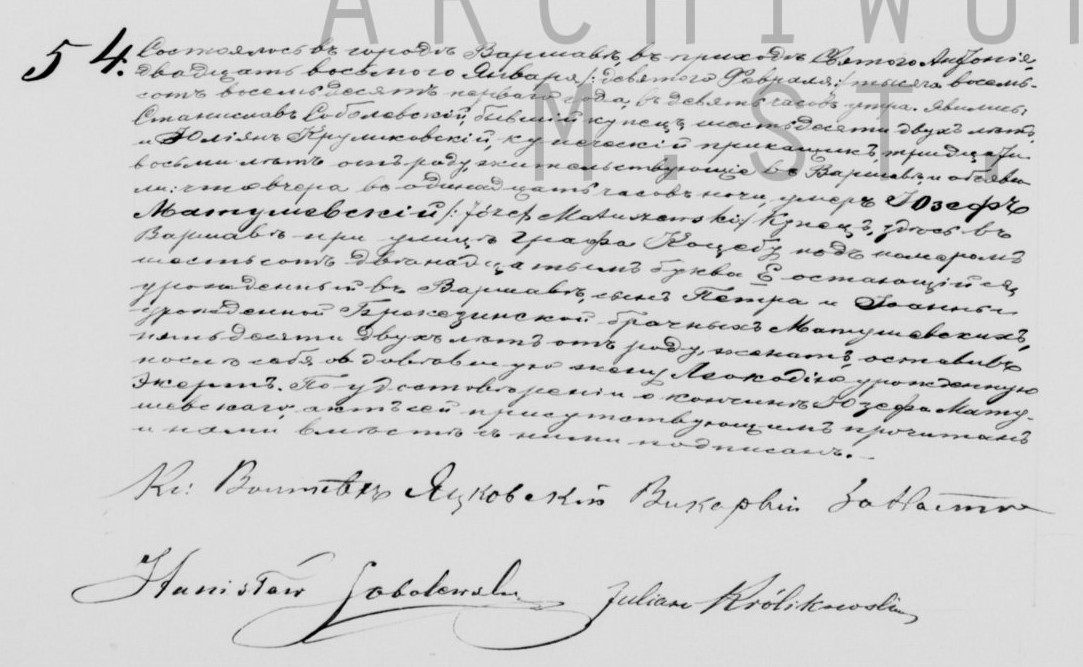 ARCHIWUM
M. ST.
54.
Состоялось въ городѣ Варшавѣ, въ приходѣ Святого Антонія,
двадцать восьмого Января /: девятого Февраля :/ тысяча восемь-
сотъ восемьдесятъ перваго года, въ девять часовъ утра. Явились,
Станиславъ Соболевскій, бывшій купецъ, шестьдесяти двухъ лѣтъ,
и Юліянъ Круликовскій, купеческій прикащикъ, тридцати
восьми лѣтъ отъ роду, жительствующіе въ Варшавѣ, и объяви-
ли: что вчера въ одинадцать часовъ ночи, умеръ Юзефъ
Матушевскій /: Józef Matuszewski :/ Купецъ, здѣсь въ
Варшавѣ при улицѣ Графа Коцебу подъ номеромъ
шестьсотъ двѣнадцатымъ буква Е остающійся,
урожденный въ Варшавѣ, сынъ Петра и Іоанны
урожденной Бржезинской брачныхъ Матушевскихъ,
пятьдесяти двухъ лѣтъ отъ роду, женатъ, оставивъ
послѣ себя овдовѣвшую жену Леокодію урожденную
Экертъ. По удостовѣреніи о кончинѣ Юзефа Мату-
шевскаго, актъ сей присутствующимъ прочитанъ
и нами вмѣстѣ съ ними подписанъ.
Кс: Яцковскій Викарвій За
Stanisław Sobolewski
Julian Królikowski